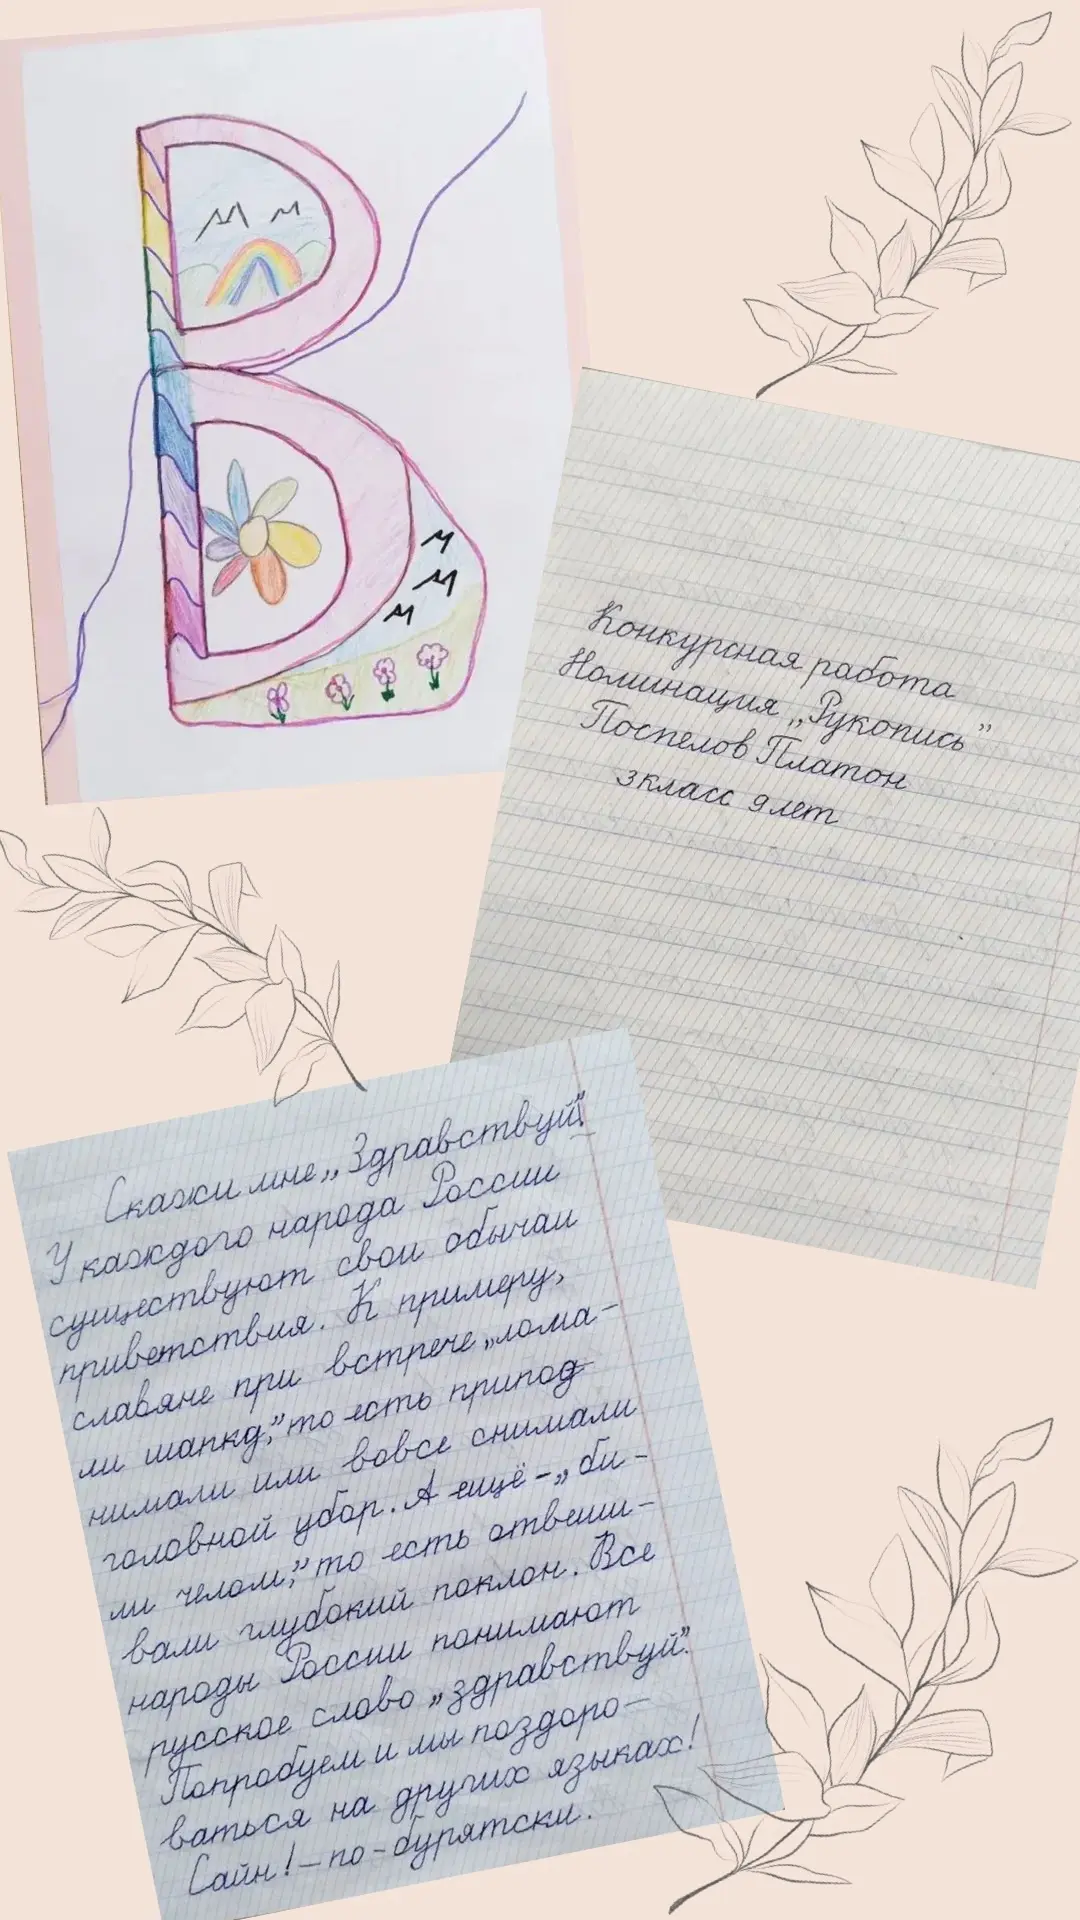 В
Конкурсная работа
Номинация „Рукопись”
Поспелов Платон
3класс 9лет
Скажи мне „Здравствуй”.
У каждого народа России
существуют свои обычаи
приветствия. К примеру,
славяне при встрече „лома-
ли шапку,” то есть припод
нимали или вовсе снимали
головной убор. А ещё - „би-
ли челом,” то есть отвеши-
вали глубокий поклон. Все
народы России понимают
русское слово „здравствуй”.
Попробуем и мы поздоро-
ваться на других языках!
Сайн! - по-бурятски.